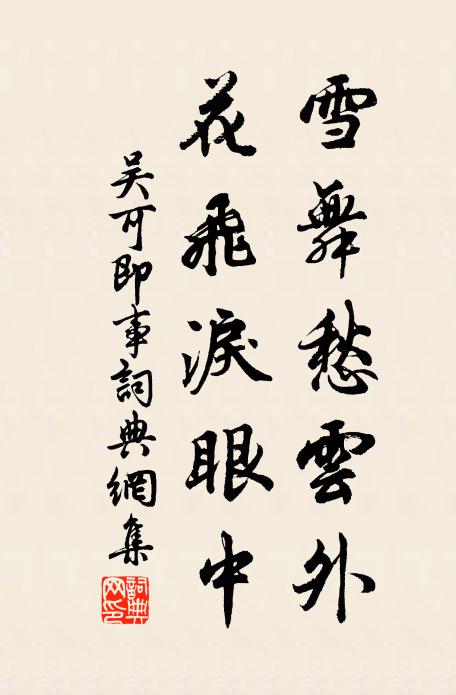 雪舞愁雲外
花飛淚眼中
吳可即事詞典網集
詞典网印